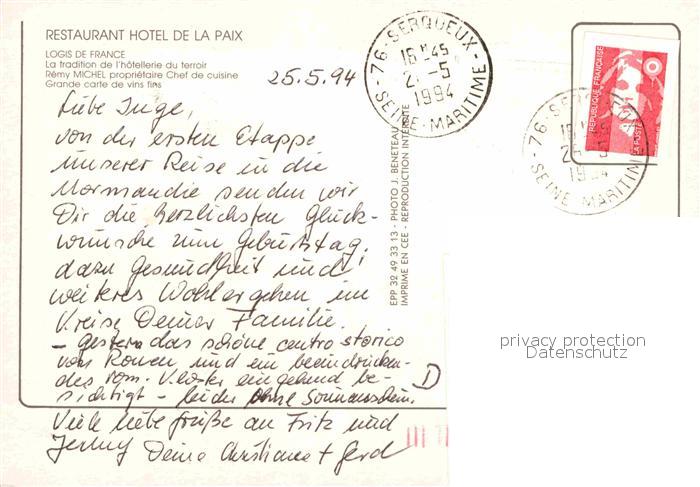 RESTAURANT HOTEL DE LA PAIX
LOGIS DE FRANCE
La tradition de l'hôtellerie du terroir
Rémy MICHEL propriétaire Chef de cuisine
Grande carte de vins fins
25.5.94
Liebe Inge,
von der ersten Etappe
unserer Reise in die
Normandie senden wir
Dir die herzlichsten Glück-
wünsche zum Geburtstag,
dazu Gesundheit und
weiteres Wohlergehen im
Kreise Deiner Familie.
- gestern das schöne centro storico
von Rouen und ein beeindrucken-
des rom. Kloster eingehend be-
sichtigt - leider ohne Sonnenschein.
Viele liebe Grüße an Fritz und
Deine Christiane + Gerd
D
76 - SERQUEUX -
16 H 45
2 -5
1994
SEINE - MARITIME
EPP 32 49 33 13 - PHOTO J. BENETEAU
IMPRIME EN CEE - REPRODUCTION INTERDITE
REPUBLIQUE FRANÇAISE
LA POSTE
76 - SE
1994
SEINE MARITIME
privacy protection
Datenschutz